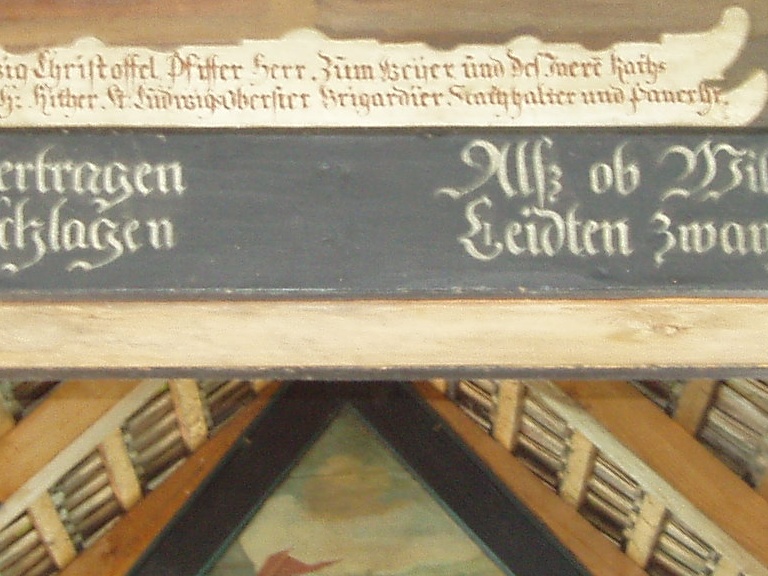 Christoffel Pfiffer Herr Zum Weijer und des Jnerē Raths
Rither. St. Ludwigs Oberster Brigardier. Statthalter und Panerhr.
ertragen Alß ob Wil
chlagen Leidten zwan